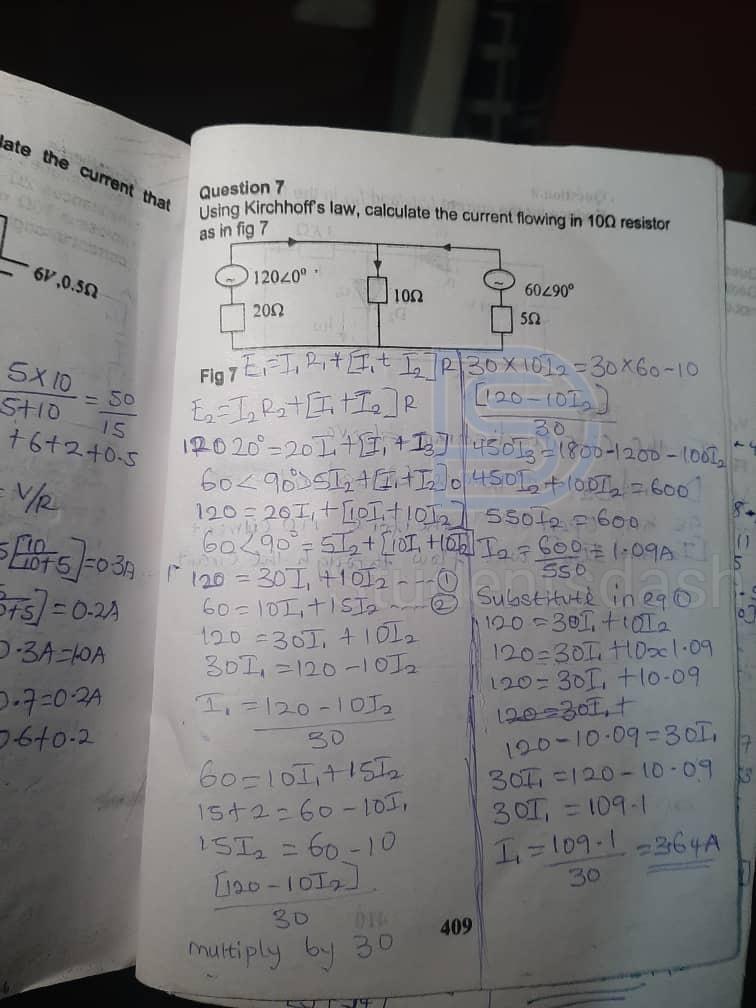 late the current that
6V,0.5Ω
5×10 = 50
5+10 15
+6+2+0.5
= V/R
5[10/10+5]=0.3A
+5]=0.2A
0.3A=10A
0.7=0.2A
0.6+0.2
Question 7
Using Kirchhoff's law, calculate the current flowing in 10Ω resistor
as in fig 7
120∠0°
20Ω
10Ω
60∠90°
5Ω
Fig 7
E₁=I₁R₁+[I₁+I₂]R
E₂=I₂R₂+[I₁+I₂]R
12020°=20I₁+[I₁+I₂]
60<90°=5I₂+[I₁+I₂]0
120=20I₁+[10I₁+10I₂]
60<90°=5I₂+[10I₁+10I₂]
120=30I₁+10I₂----①
60=10I₁+15I₂----②
120=30I₁+10I₂
30I₁=120-10I₂
I₁=120-10I₂
30
60=10I₁+15I₂
15+2=60-10I₁
15I₂=60-10
[120-10I₂]
30
multiply by 30
30×10I₂=30×60-10
[120-10I₂]
30
450I₂=1800-1200-100I₂
450I₂+100I₂=600
550I₂=600
I₂=600=1.09A
550
Substitute in eq①
120=30I₁+10I₂
120=30I₁+10×1.09
120=30I₁+10.09
120=30I₁+
120-10.09=30I₁
30I₁=120-10.09
30I₁=109.1
I₁=109.1=3.64A
30
409
student'sdash